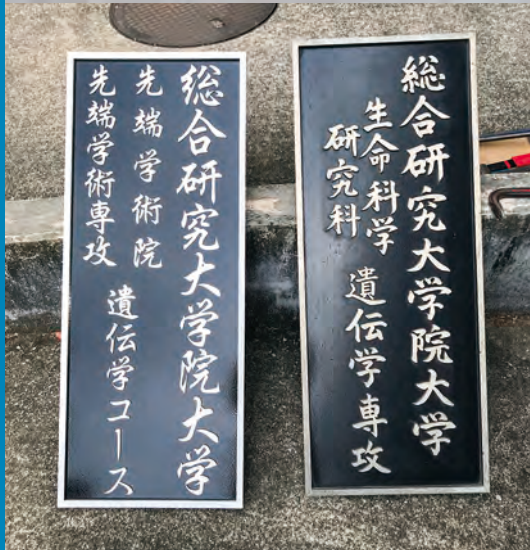 総合研究大学院大学
先端学術院
先端学術専攻 遺伝学コース
総合研究大学院大学
生命科学
研究科 遺伝学専攻